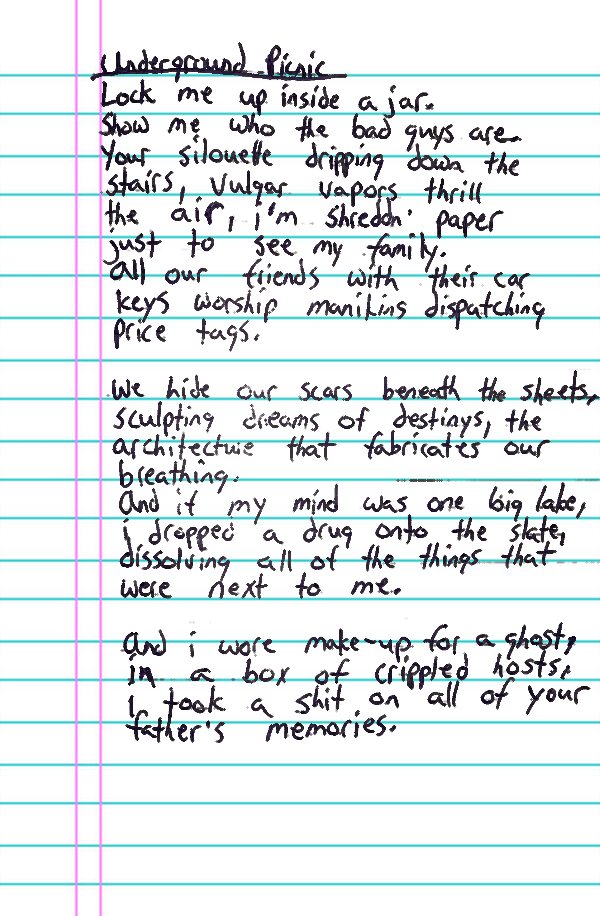 Underground Picnic
Lock me up inside a jar.
Show me who the bad guys are.
Your silouette dripping down the
stairs, Vulgar vapors thrill
the air, i'm shreddn' paper
just to see my family.
all our friends with their car
keys worship manikins dispatching
price tags.
We hide our scars beneath the sheets,
sculpting dreams of destinys, the
architecture that fabricates our
breathing.
And if my mind was one big lake,
i dropped a drug onto the slate,
dissolving all of the things that
were next to me.
And i wore make-up for a ghost,
in a box of crippled hosts,
i took a shit on all of your
father's memories.